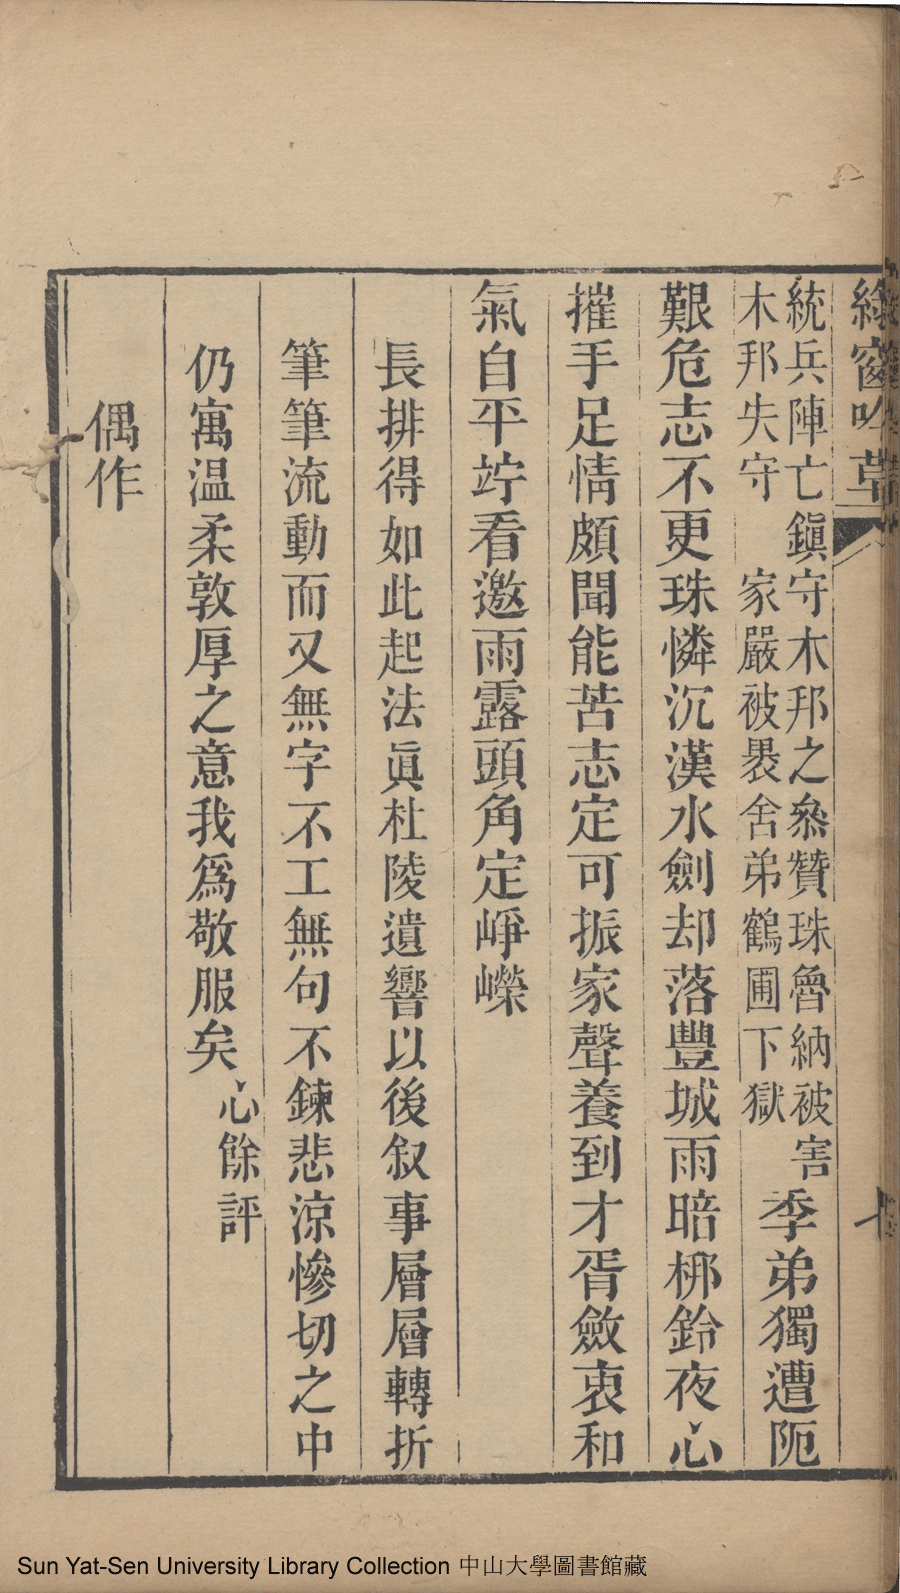 綠窗吟草
統兵陣亡鎮守木邦之叅贊珠魯納被害
木邦失守　家嚴被褁舍弟鶴圃下獄
季弟獨遭阨
艱危志不更珠憐沉漢水劍却落豐城雨暗梆鈴夜心
摧手足情頗聞能苦志定可振家聲養到才胥斂衷和
氣自平竚看邀雨露頭角定崢嶸
長排得如此起法眞杜陵遺響以後叙事層層轉折
筆筆流動而又無字不工無句不鍊悲涼慘切之中
仍寓温柔敦厚之意我爲敬服矣
心餘評
偶作
Sun Yat-Sen University Library Collection 中山大學圖書館藏